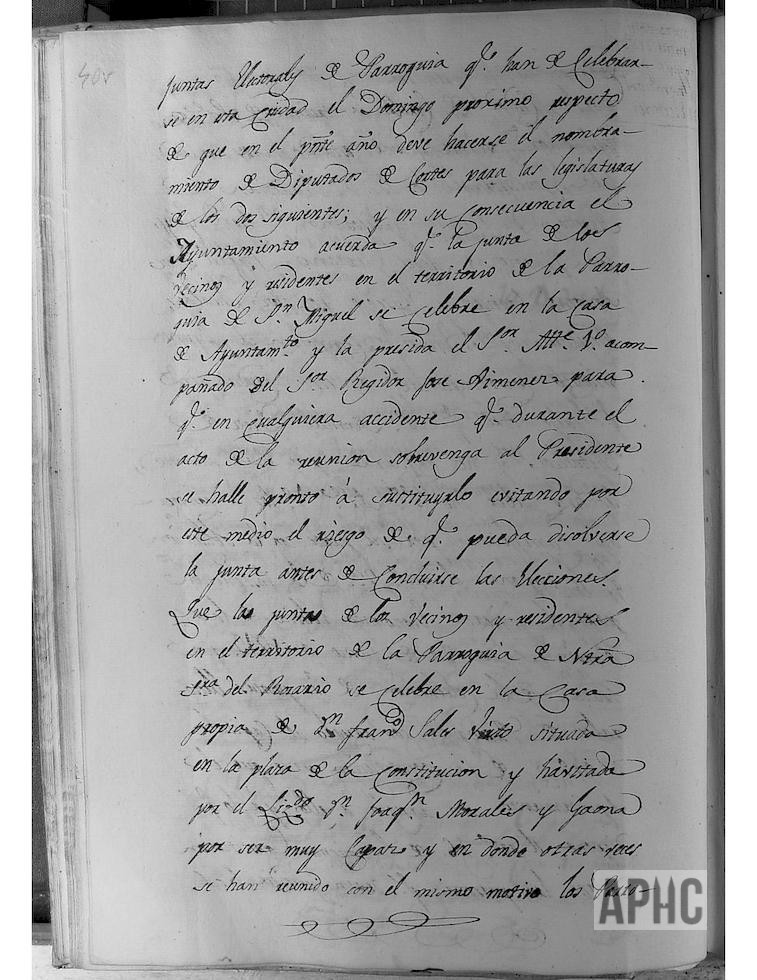 40v
juntas Electorales de Parroquia q.e han de Celebrar-
se en esta Ciudad el Domingo proximo respecto
de que en el pnte año deve hacerse el nombra-
miento de Diputados de Cortes para las legislaturas
de los dos siguientes; y en su consecuencia el
Ayuntamiento acuerda q.e la junta de los
vecinos y residentes en el territorio de la Parro-
quia de S.n Miguel se Celebre en la Casa
de Ayuntam.to y la presida el S.or Alle. 1.o acom-
pañado del S.or Regidor Jose Ximenez para
q.e en qualquiera accidente q.e durante el
acto de la reunion sobrevenga al Presidente
se halle pronto á sustituyrlo evitando por
este medio el riesgo de q.e pueda disolverse
la junta antes de Concluirse las Elecciones.
Que las juntas de los vecinos y residentes
en el territorio de la Parroquia de Ntra
S.ra del Rosario se Celebre en la Casa
propia de D.n Fran.co Sales situada
en la plaza de la Constitucion y havitada
por el Liz.do D.n Joaq.n Morales y Gaona
por ser muy Capaz y en donde otras veces
se han reunido con el mismo motivo los Parro-
APHC